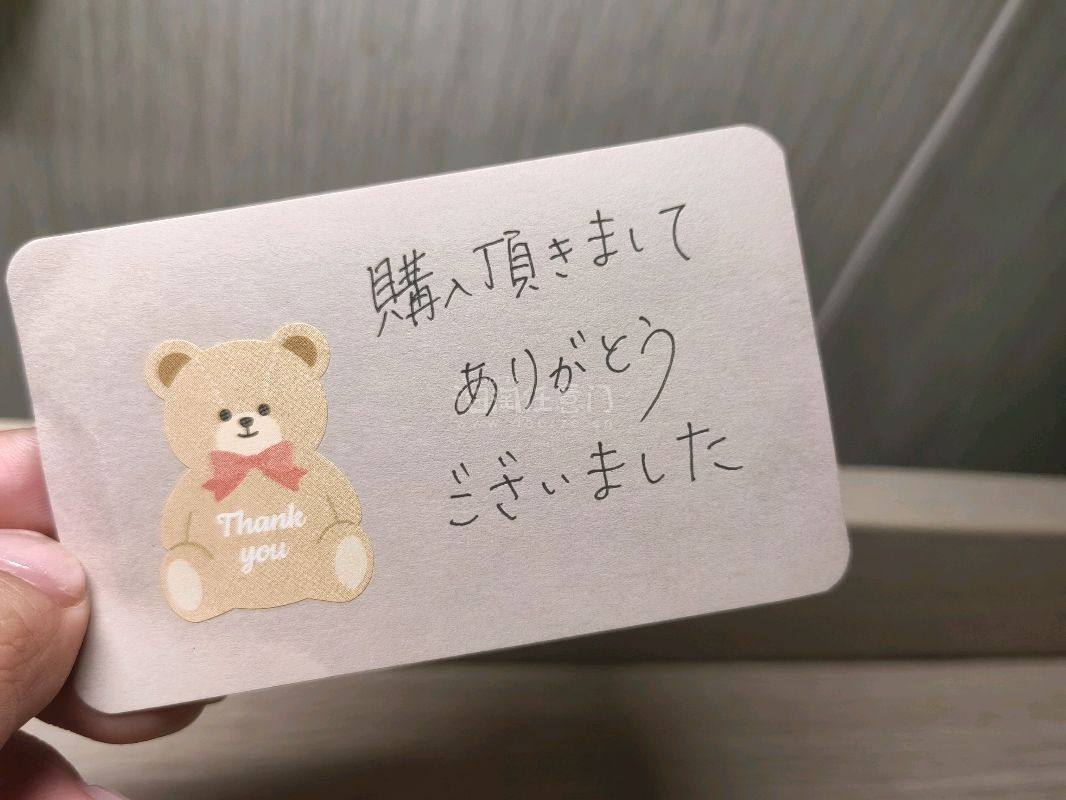 購入頂きまして
ありがとう
ございました
Thank
you